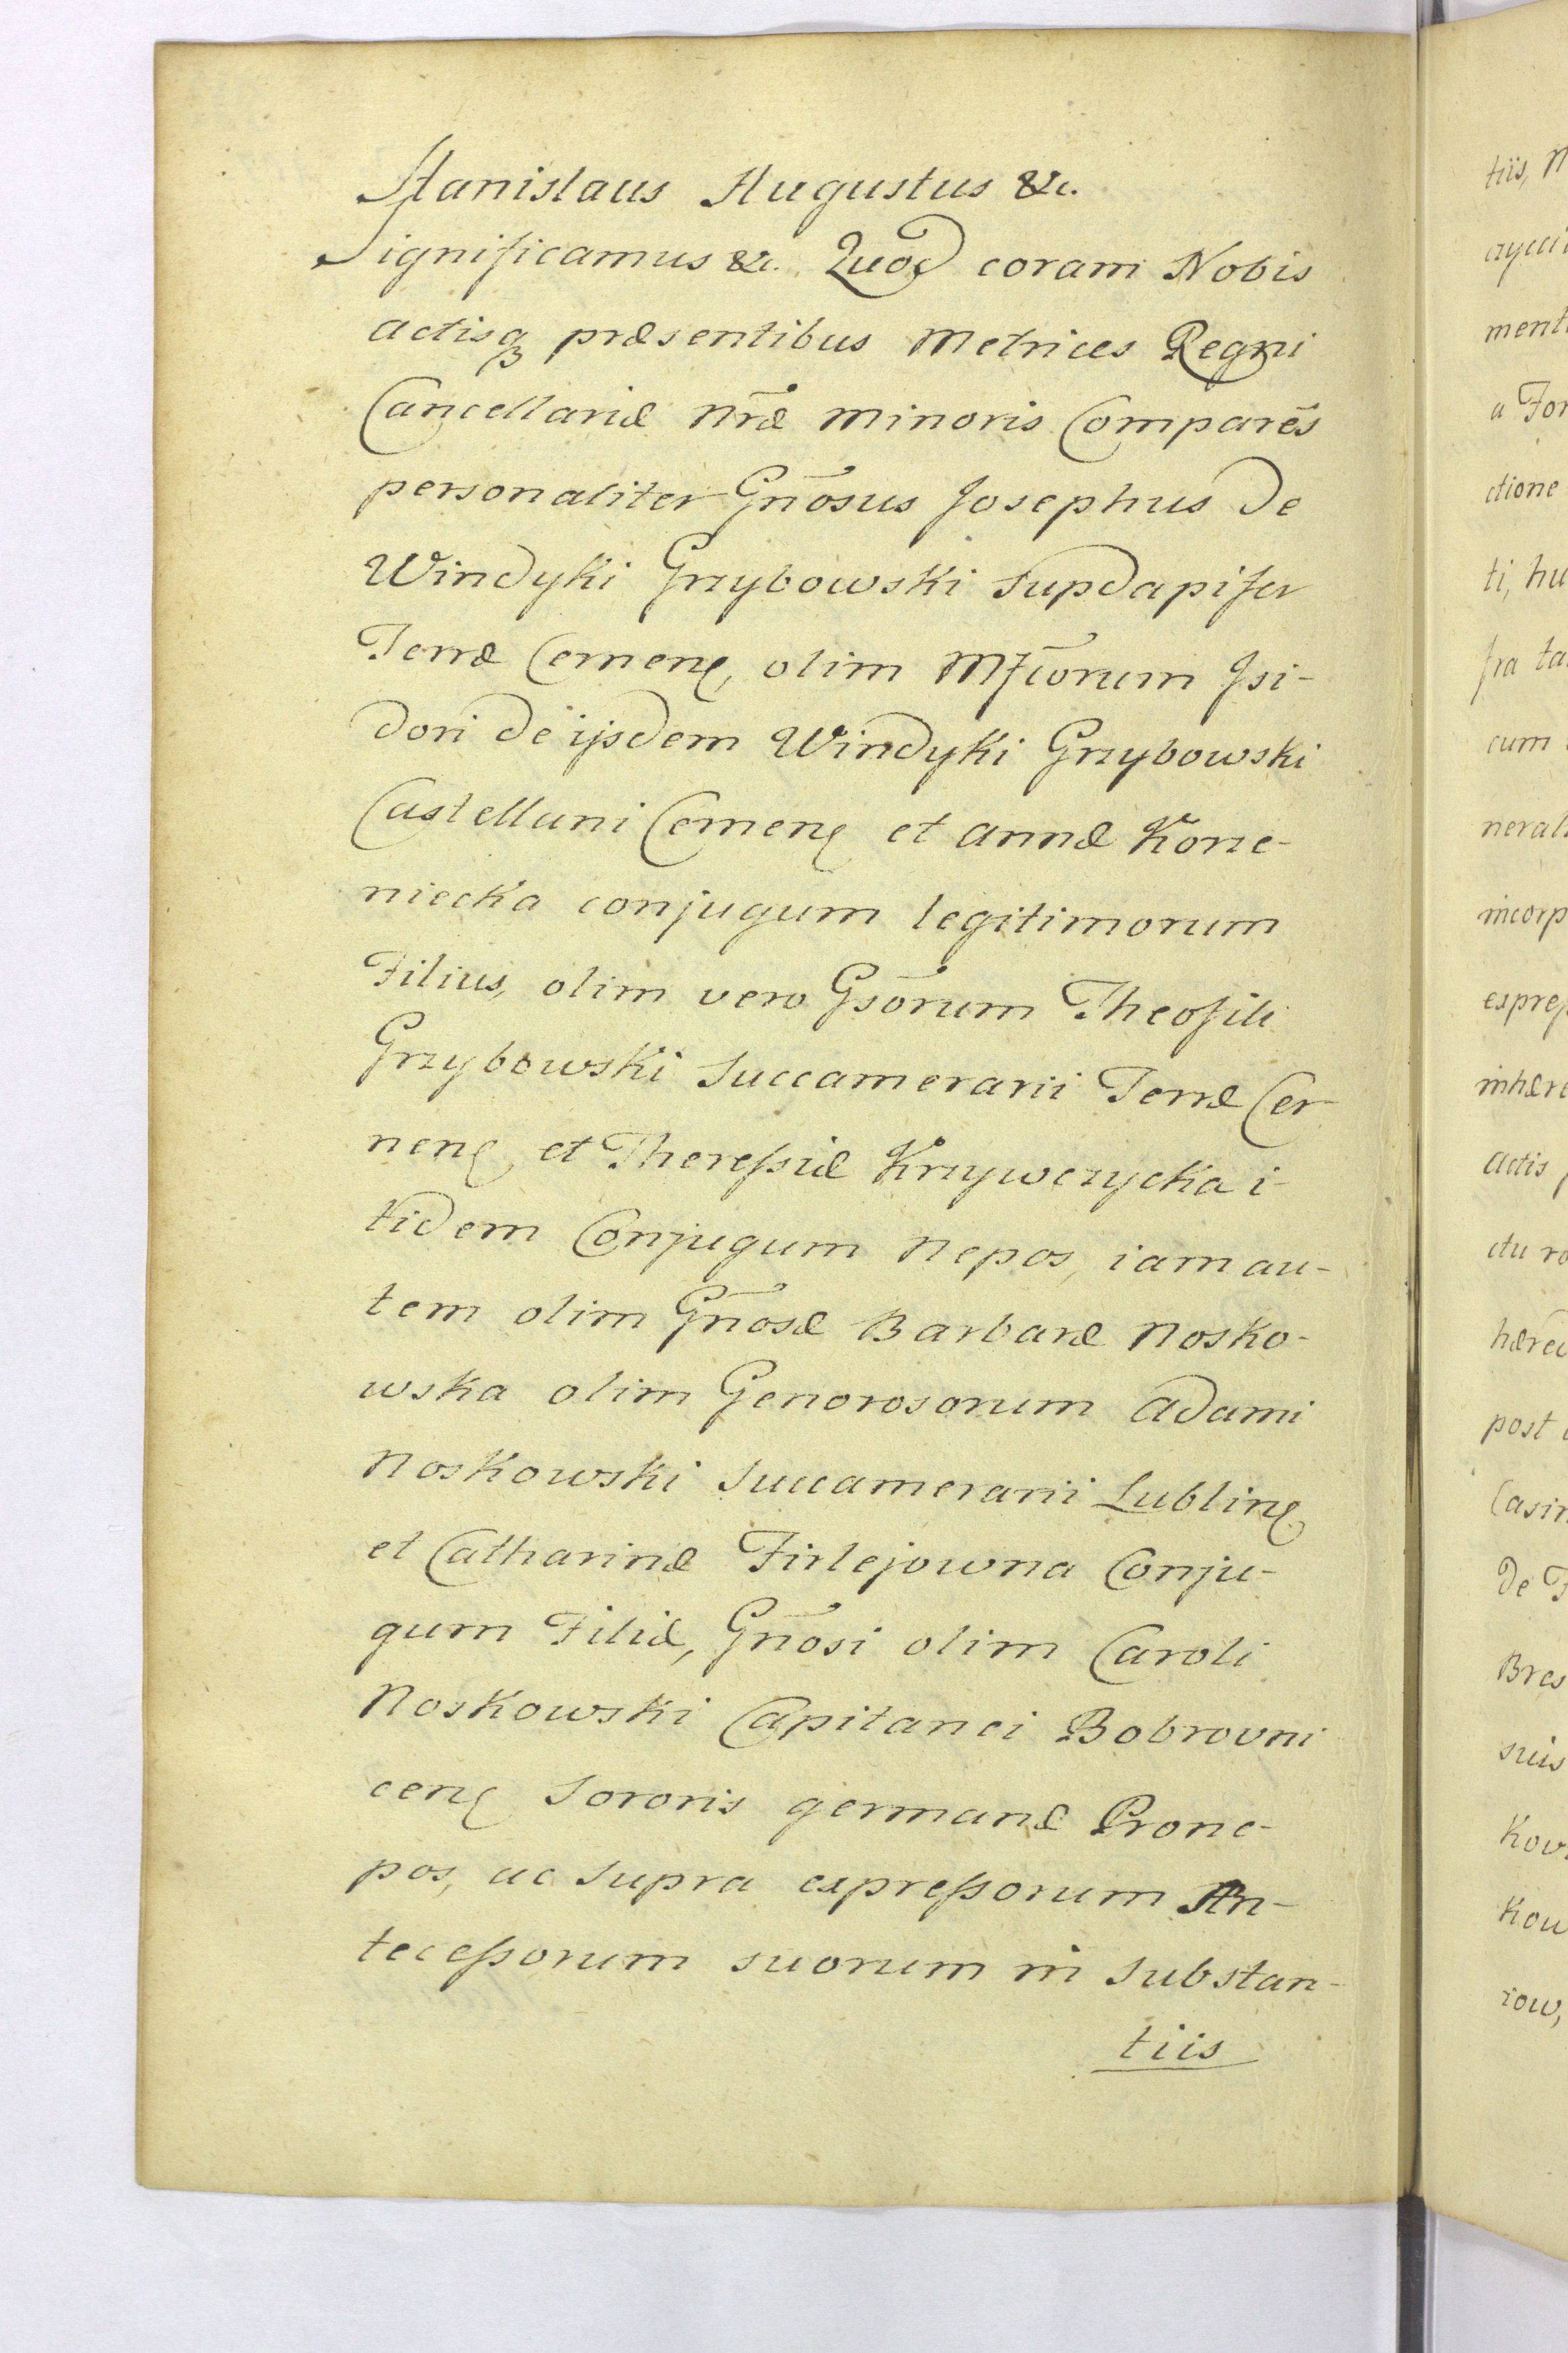 Stanislaus Augustus &c.
Significamus &c. Quod coram Nobis
actisq3 præsentibus Metrices Regni
Cancellariæ Nr̃æ Minoris Comparẽs
personaliter Gñosus Josephus de
Windyki Grzybowski Supdapifer
Terræ Cernenę, olim Mfc̃orum Isi-
dori de ijsdem Windyki Grzybowski
Castellani Cernenę et Annæ Korze-
niecka conjugum legitimorum
Filius, olim vero Gsõrum Theofili
Grzybowski Succamerarii Terræ Cer-
nenę et Theressiæ Krzywczycka i-
tidem Conjugum Nepos, iam au-
tem olim Gñosæ Barbaræ Nosko-
wska olim Genorosorum Adami
Noskowski Succamerarii Lublinę
et Catharinæ Firlejowna Conju-
gum Filiæ, Gñosi olim Caroli
Noskowski Capitanei Bobrovni
cenę Sororis germanæ Prone-
pos, ac supra expressorum An-
tecessorum suorum in substan-
tiis
tiis,
ment
a For
ctione
ti, hu
fra ta
cum
neral
incorp
espress
inhære
actis
ctu
hæred
post
Casim
de F
Bres
suis
Kow
Kow
row,